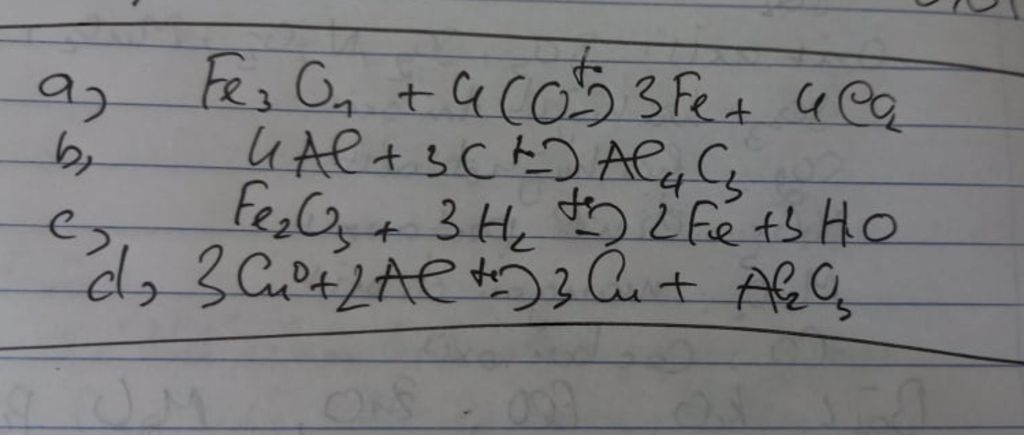 a, Fe3O4 + 4CO t°→ 3Fe + 4CO2
b, 4Al + 3C t°→ Al4C3
c, Fe2O3 + 3H2 t°→ 2Fe + 3H2O
d, 3CuO + 2Al t°→ 3Cu + Al2O3